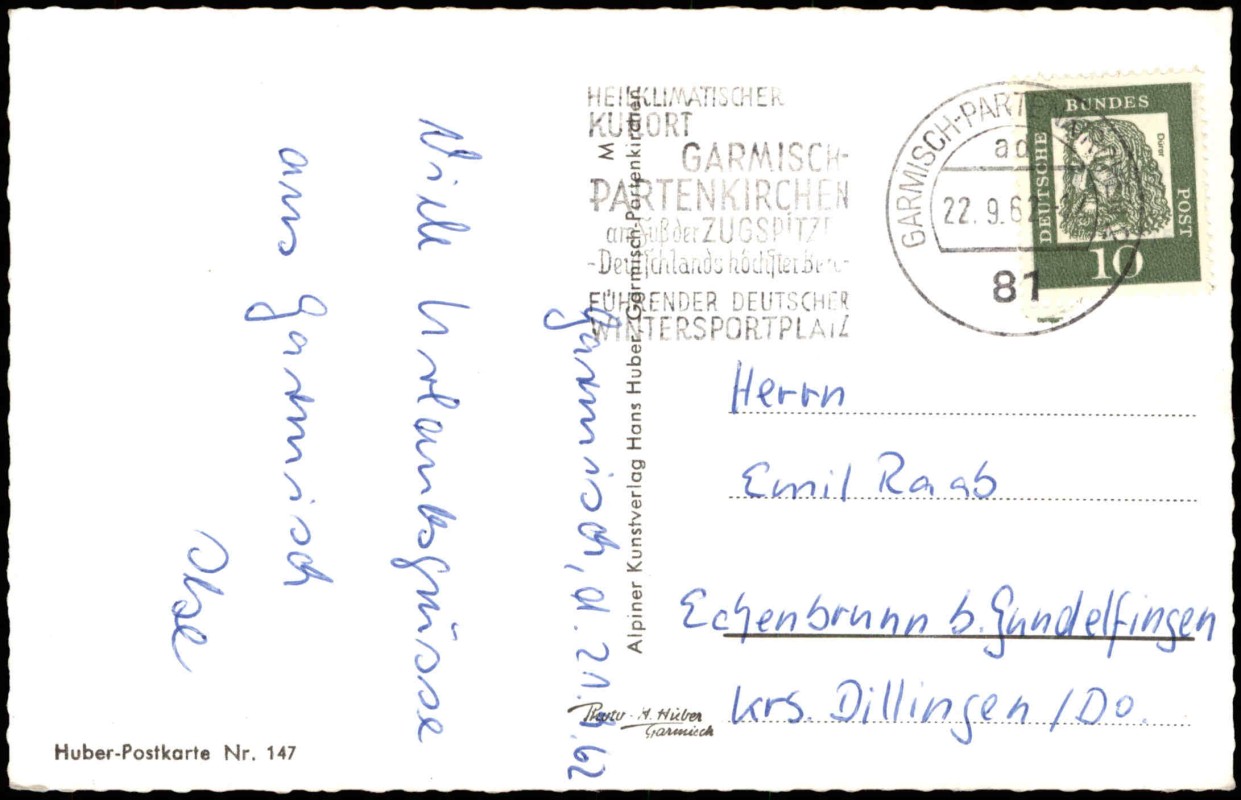 Garmisch, d. 21.9.62
Viele Urlaubsgrüsse
aus Garmisch
Ilse
Huber-Postkarte Nr. 147
M
Alpiner Kunstverlag Hans Huber, Garmisch-Partenkirchen
Photo - H. Huber
Garmisch
HEILKLIMATISCHER
KURORT
GARMISCH-
PARTENKIRCHEN
am Fuß der ZUGSPITZE
-Deutschlands höchster Berg-
FÜHRENDER DEUTSCHER
WINTERSPORTPLATZ
GARMISCH-PARTENKIRCHEN
ad
22.9.62
81
DEUTSCHE
BUNDES
POST
Dürer
10
Herrn
Emil Raab
Echenbrunn b. Gundelfingen
Krs. Dillingen /Do.